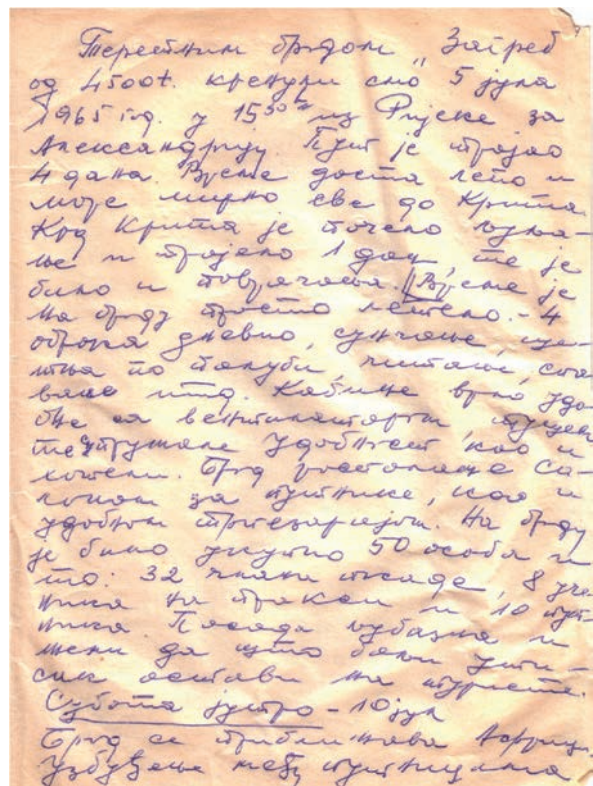 Теретним бродом „Загреб
од 4500t. кренули смо 5 јуна
1965 год. у 15³⁰ʰ из Ријеке за
Александрију. Пут је трајао
4 дана. Време доста лепо и
море мирно све до Крита.
Код Крита је почело љуља-
ње и трајало 1 дан, те је
било и повраћања. Време је
на броду просто летело. - 4
оброка дневно, сунчање, ше-
тња по палуби, читање, спа
вање итд. Кабине врло удо
бне са вентилатором, тушем
те пружале удобност као и
хотели. Брод располаже са-
лоном за путнике, као и
удобном трпезаријом. На броду
је било укупно 50 особа и
то: 32 члана посаде, 8 уче
ника на пракси и 10 пут-
ника. Посада љубазна и
жели да што бољи ути-
сак остави на туристе.
Субота јутро - 10 јун
Брод се приближава Африци.
Узбуђење међу путницима